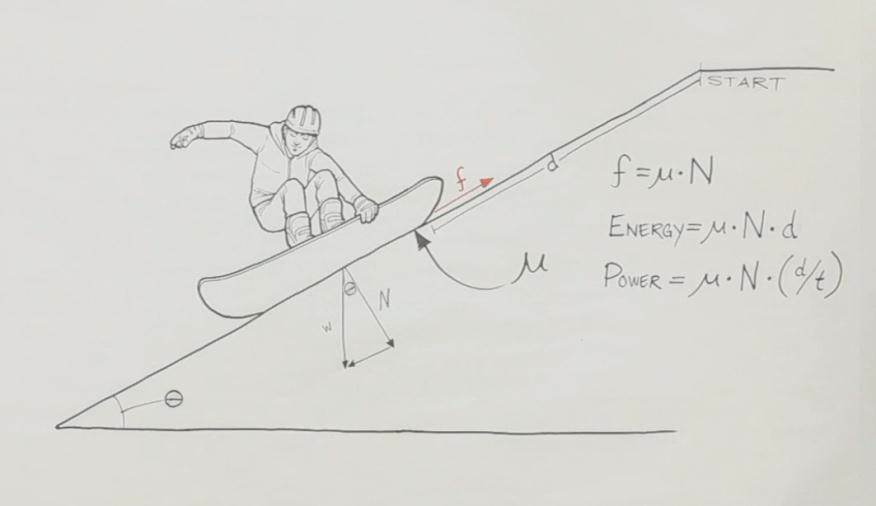 START
f
d
f=μ·N
ENERGY=μ·N·d
POWER=μ·N·(d/t)
μ
θ
N
W
θ